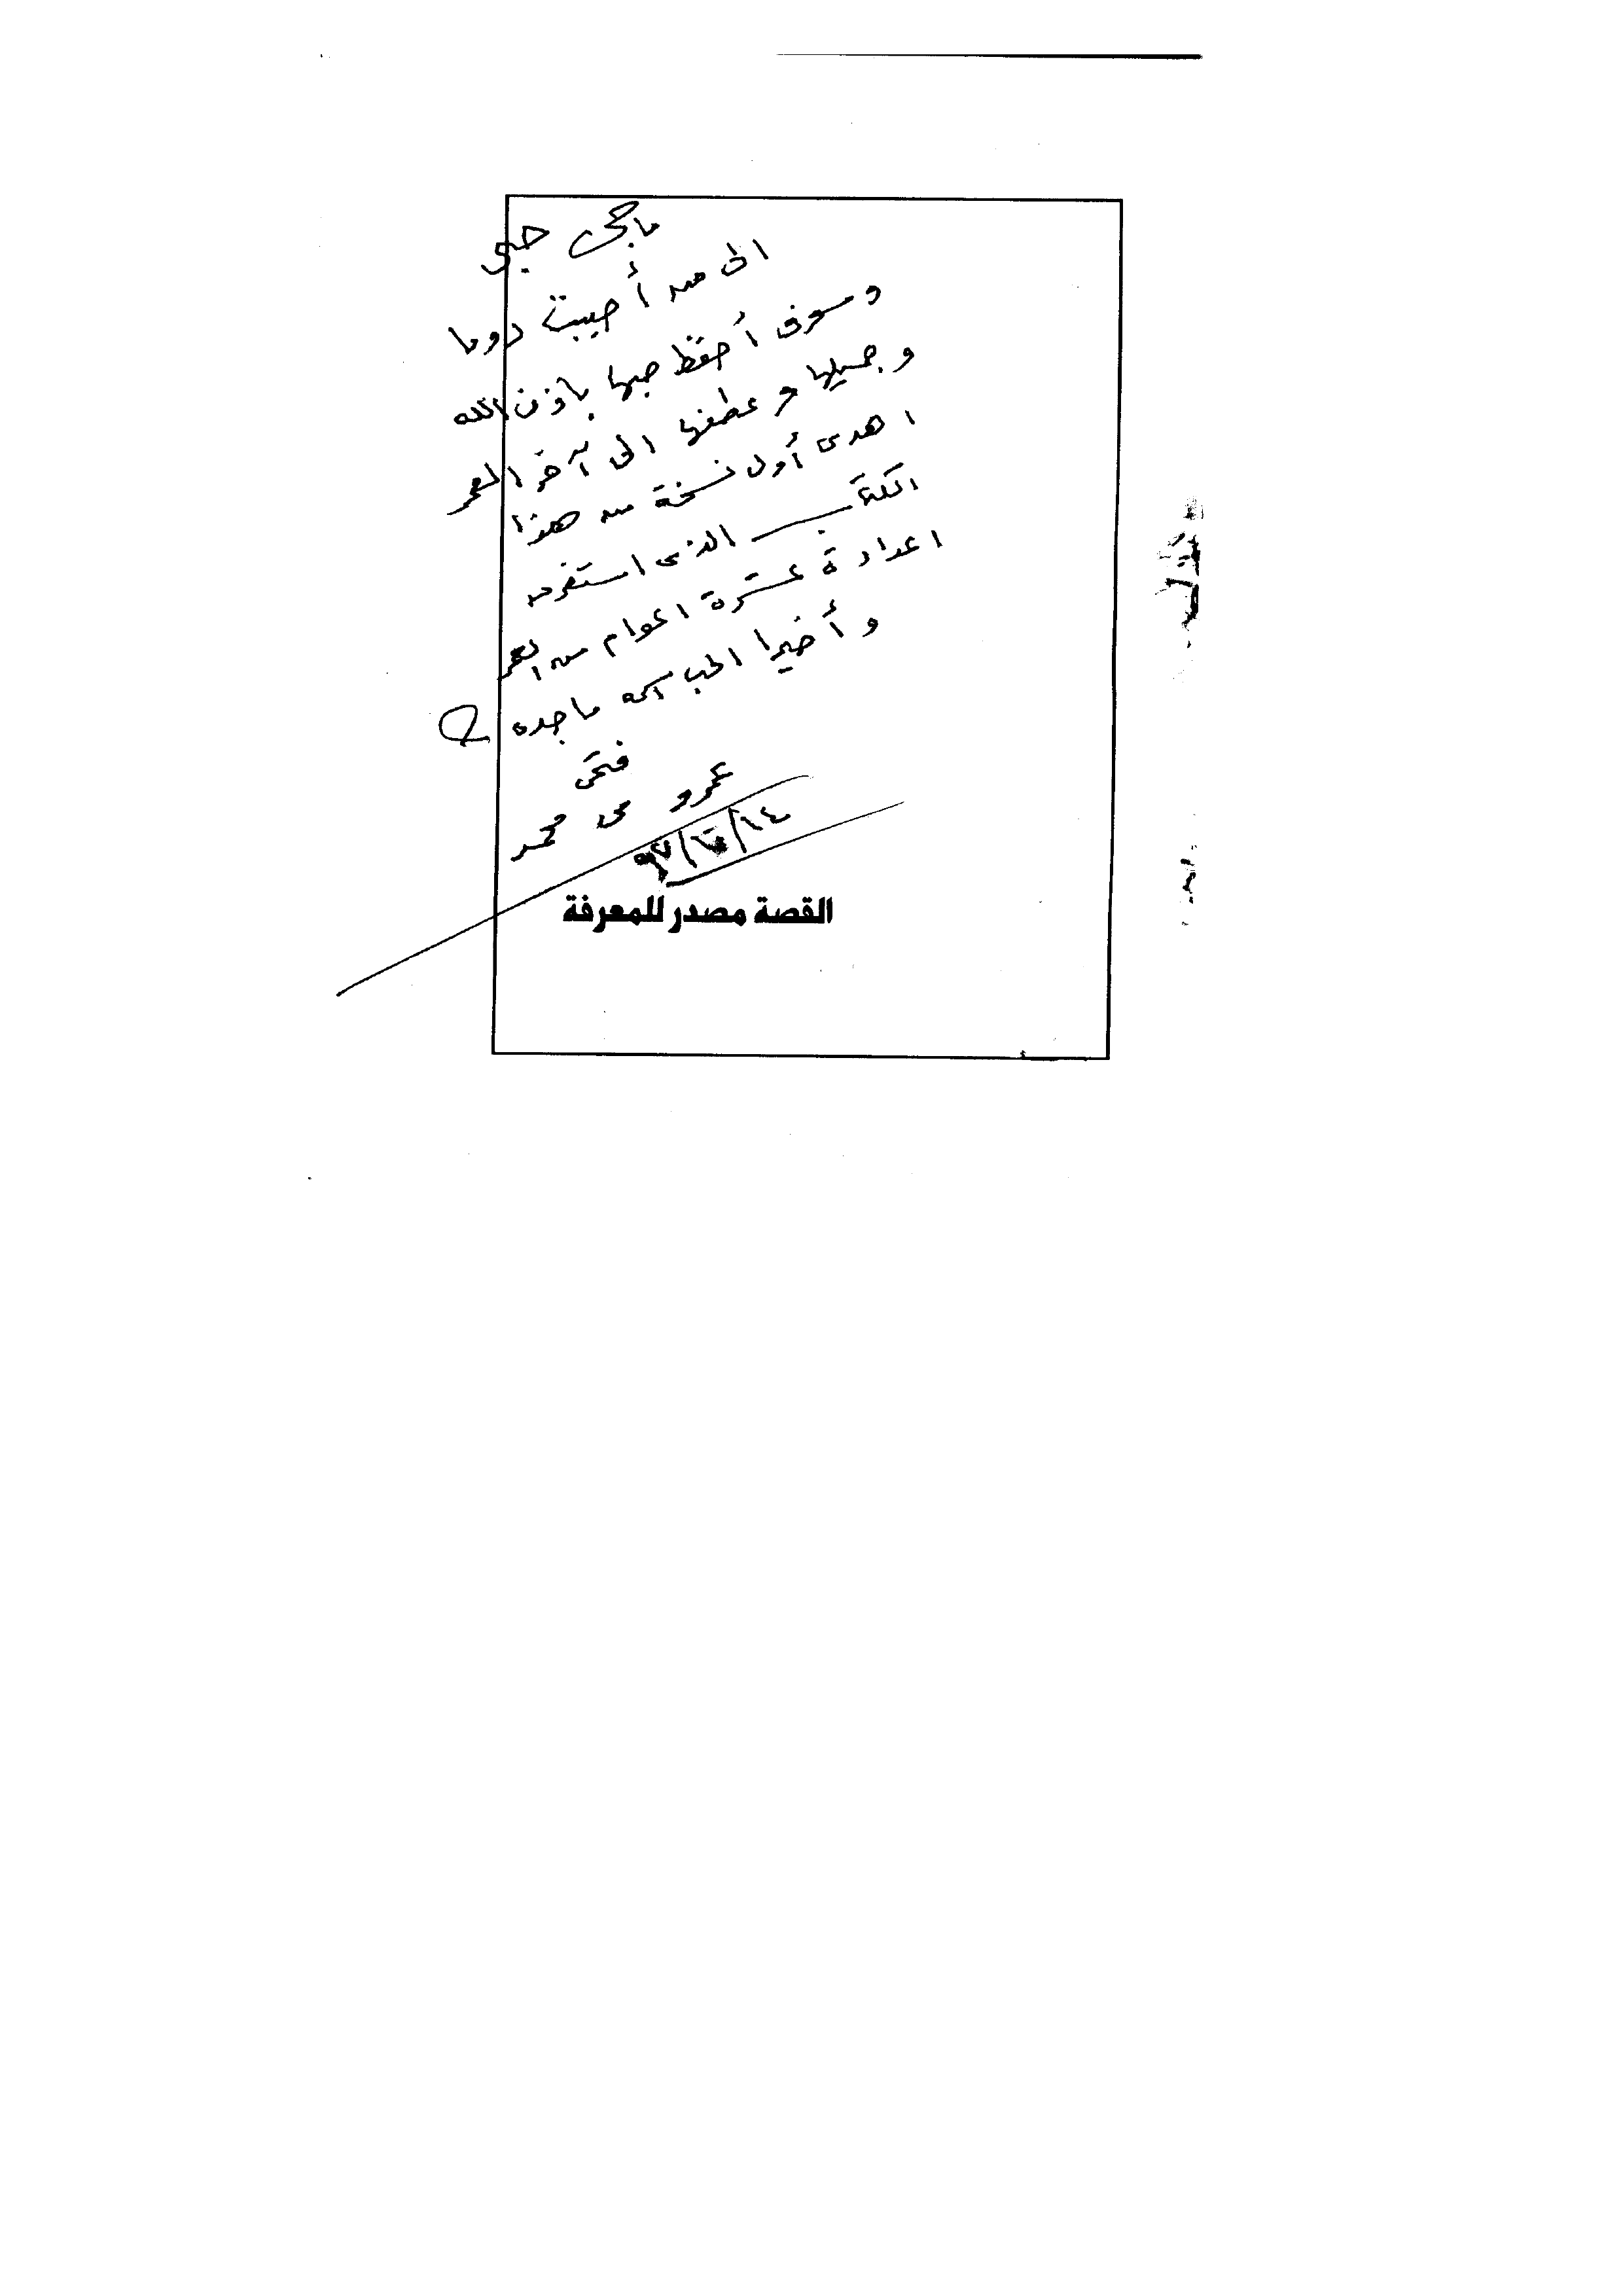 ماجى حبى
الى من أحببت دوما
وسوف أحفظ حبها بإذن الله
وجميلها وعطفها الى آخر العمر
اهدى أول نسخة من هذا
الكتاب الذى استغرق
اعداده عشرة اعوام من العمر
وأخيرا الحب اسمه ماجده
فتحى
عمرو محمد
القصة مصدر للمعرفة